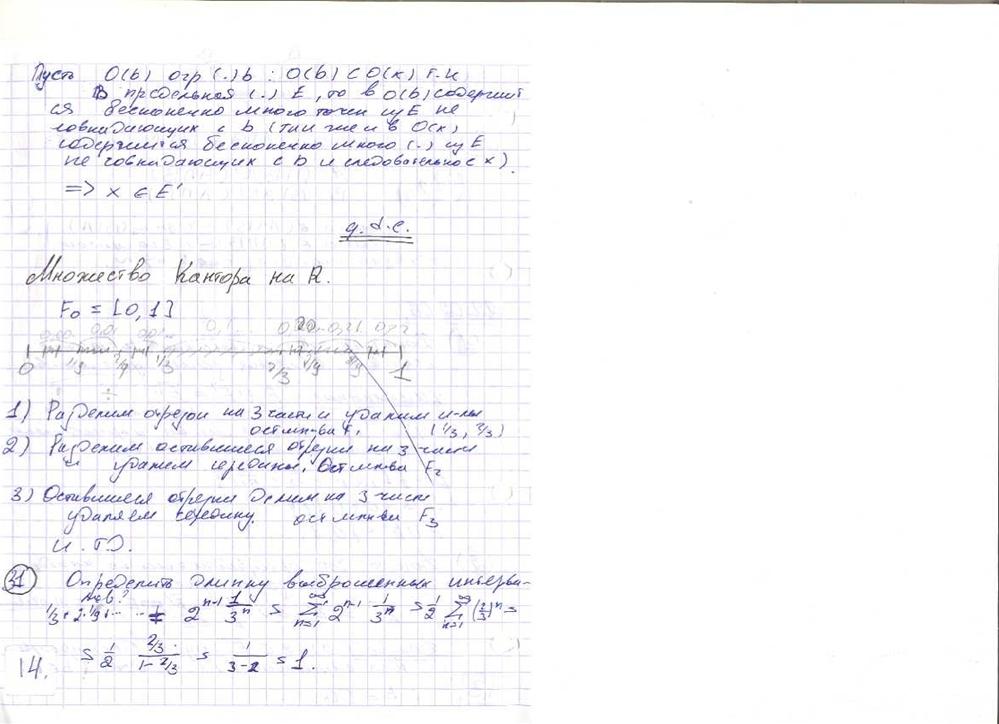 Пусть O(b) окр (.) b : O(b) ⊂ O(x) т.к
В предельная (.) E, то в O(b) содержит
ся бесконечно много точек из E не
совпадающих с b (так же и в O(x)
содержится бесконечно много (.) из E
не совпадающих с b и следовательно с x).
=> x ∈ E'
q.d.e.
Множество Кантора на R.
F₀ = [0,1]
0,1.. 0,20.. 0,21 0,22
0 1/9 2/9 1/3 2/3 7/9 8/9 1
1) Разделим отрезок на 3 части и удалим
ост мн-ва F₁ (1/3, 2/3)
2) Разделим оставшиеся отрезки на 3 части
и удаляем середины. Ост мн-ва F₂
3) Оставшиеся отрезки делим на 3 части
удаляем середину. ост мн-ва F₃
И. Т.D.
31 Определить длинну выброшенных интерва-
лов?
1/3 + 2·1/9 + ... + 2ⁿ⁻¹ 1/3ⁿ = ∑ₙ₌₁^∞ 2ⁿ⁻¹ 1/3ⁿ = 1/2 ∑ₙ₌₁^∞ (2/3)ⁿ =
= 1/2 (2/3)/(1-2/3) = 1/(3-2) = 1.
14.